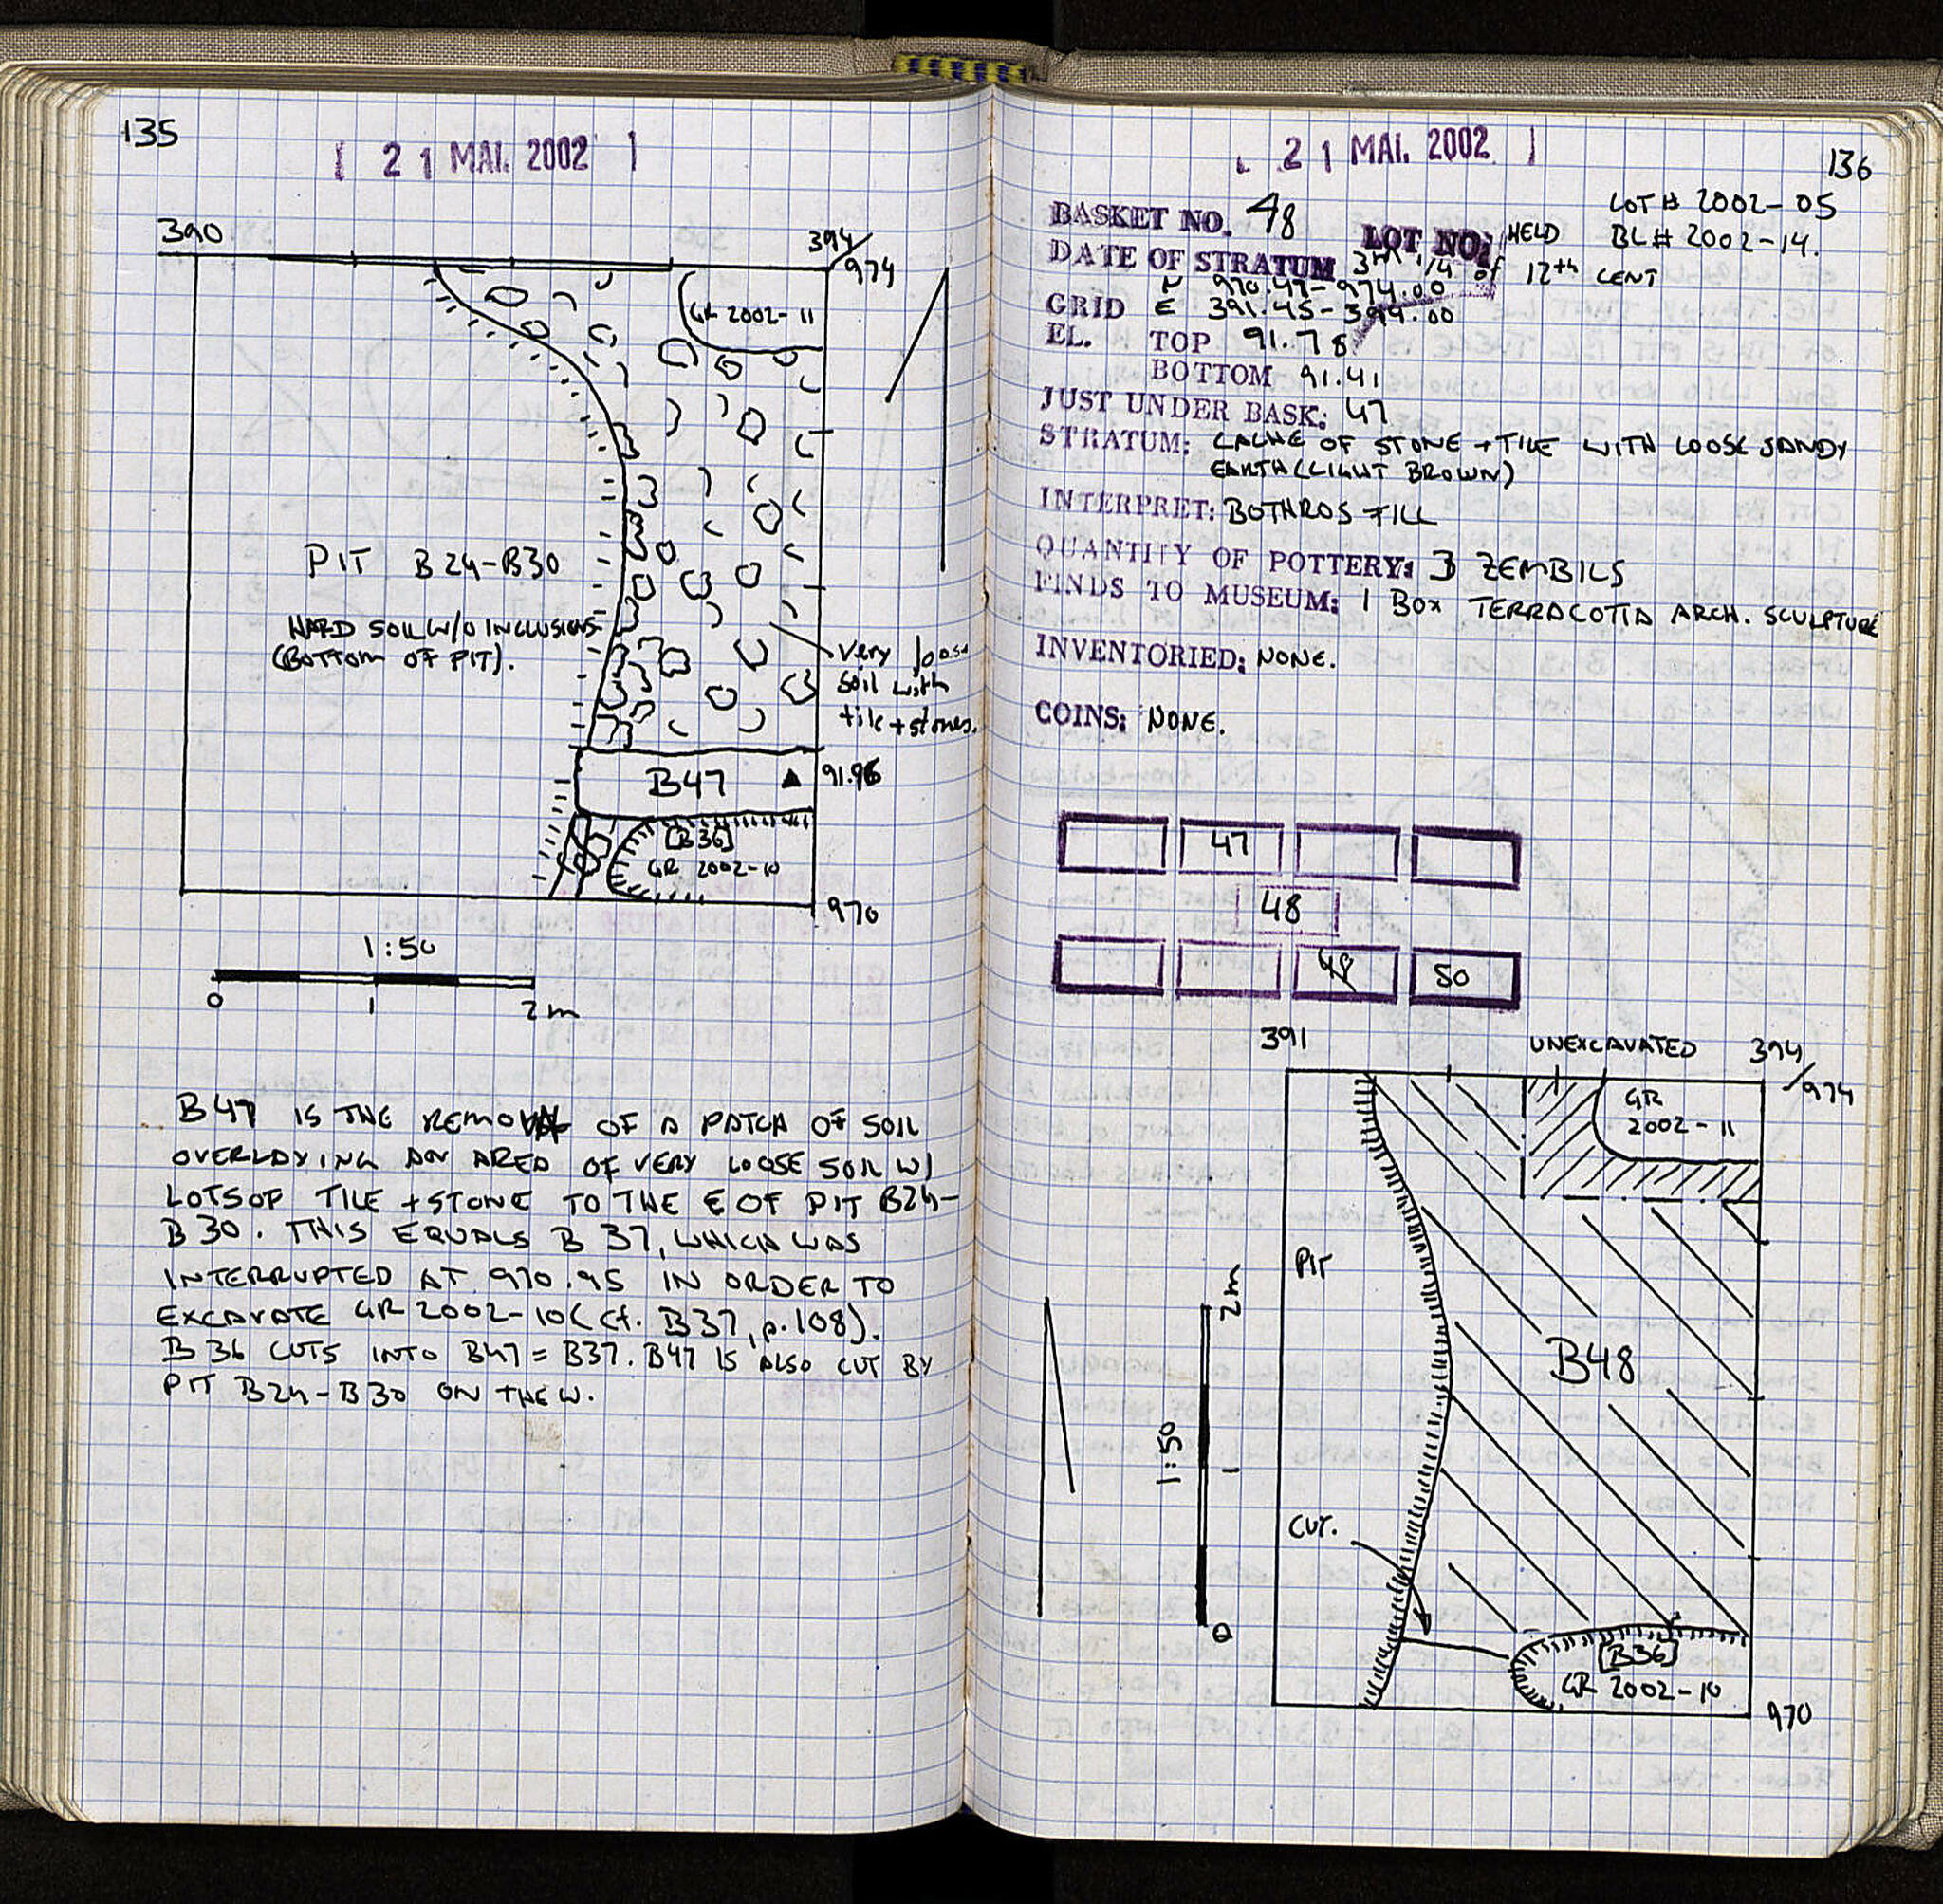 135
[ 21 MAI. 2002 ]
390
394/
974
GR 2002-11
PIT B24-B30
HARD SOIL W/O INCLUSIONS
(BOTTOM OF PIT).
very loose
soil with
tile + stones.
B47 ▲ 91.96
[B36]
GR. 2002-10
970
1:50
0 1 2m
B47 IS THE REMOVAL OF A PATCH OF SOIL
OVERLAYING AN AREA OF VERY LOOSE SOIL W/
LOTS OF TILE + STONE TO THE E OF PIT B24-
B30. THIS EQUALS B 37, WHICH WAS
INTERRUPTED AT 970.95 IN ORDER TO
EXCAVATE GR 2002-10 (cf. B37, p.108).
B36 CUTS INTO B47 = B37. B47 IS ALSO CUT BY
PIT B24-B30 ON THE W.
[ 21 MAI. 2002 ]
136
LOT # 2002-05
BL# 2002-14.
BASKET NO. 48
LOT NO: HELD
DATE OF STRATUM 3rd 1/4 of 12th CENT
N 970.47-974.00
GRID E 391.45-394.00
EL. TOP 91.78
BOTTOM 91.41
JUST UNDER BASK: 47
STRATUM: CACHE OF STONE + TILE WITH LOOSE SANDY
EARTH (LIGHT BROWN)
INTERPRET: BOTHROS FILL
QUANTITY OF POTTERY: 3 ZEMBILS
FINDS TO MUSEUM: 1 BOX TERRACOTTA ARCH. SCULPTURE
INVENTORIED: NONE.
COINS: NONE.
47
48
50
391
UNEXCAVATED
394/
974
GR
2002-11
PIT
B48
2m
1
1:50
0
CUT.
[B36]
GR 2002-10
970